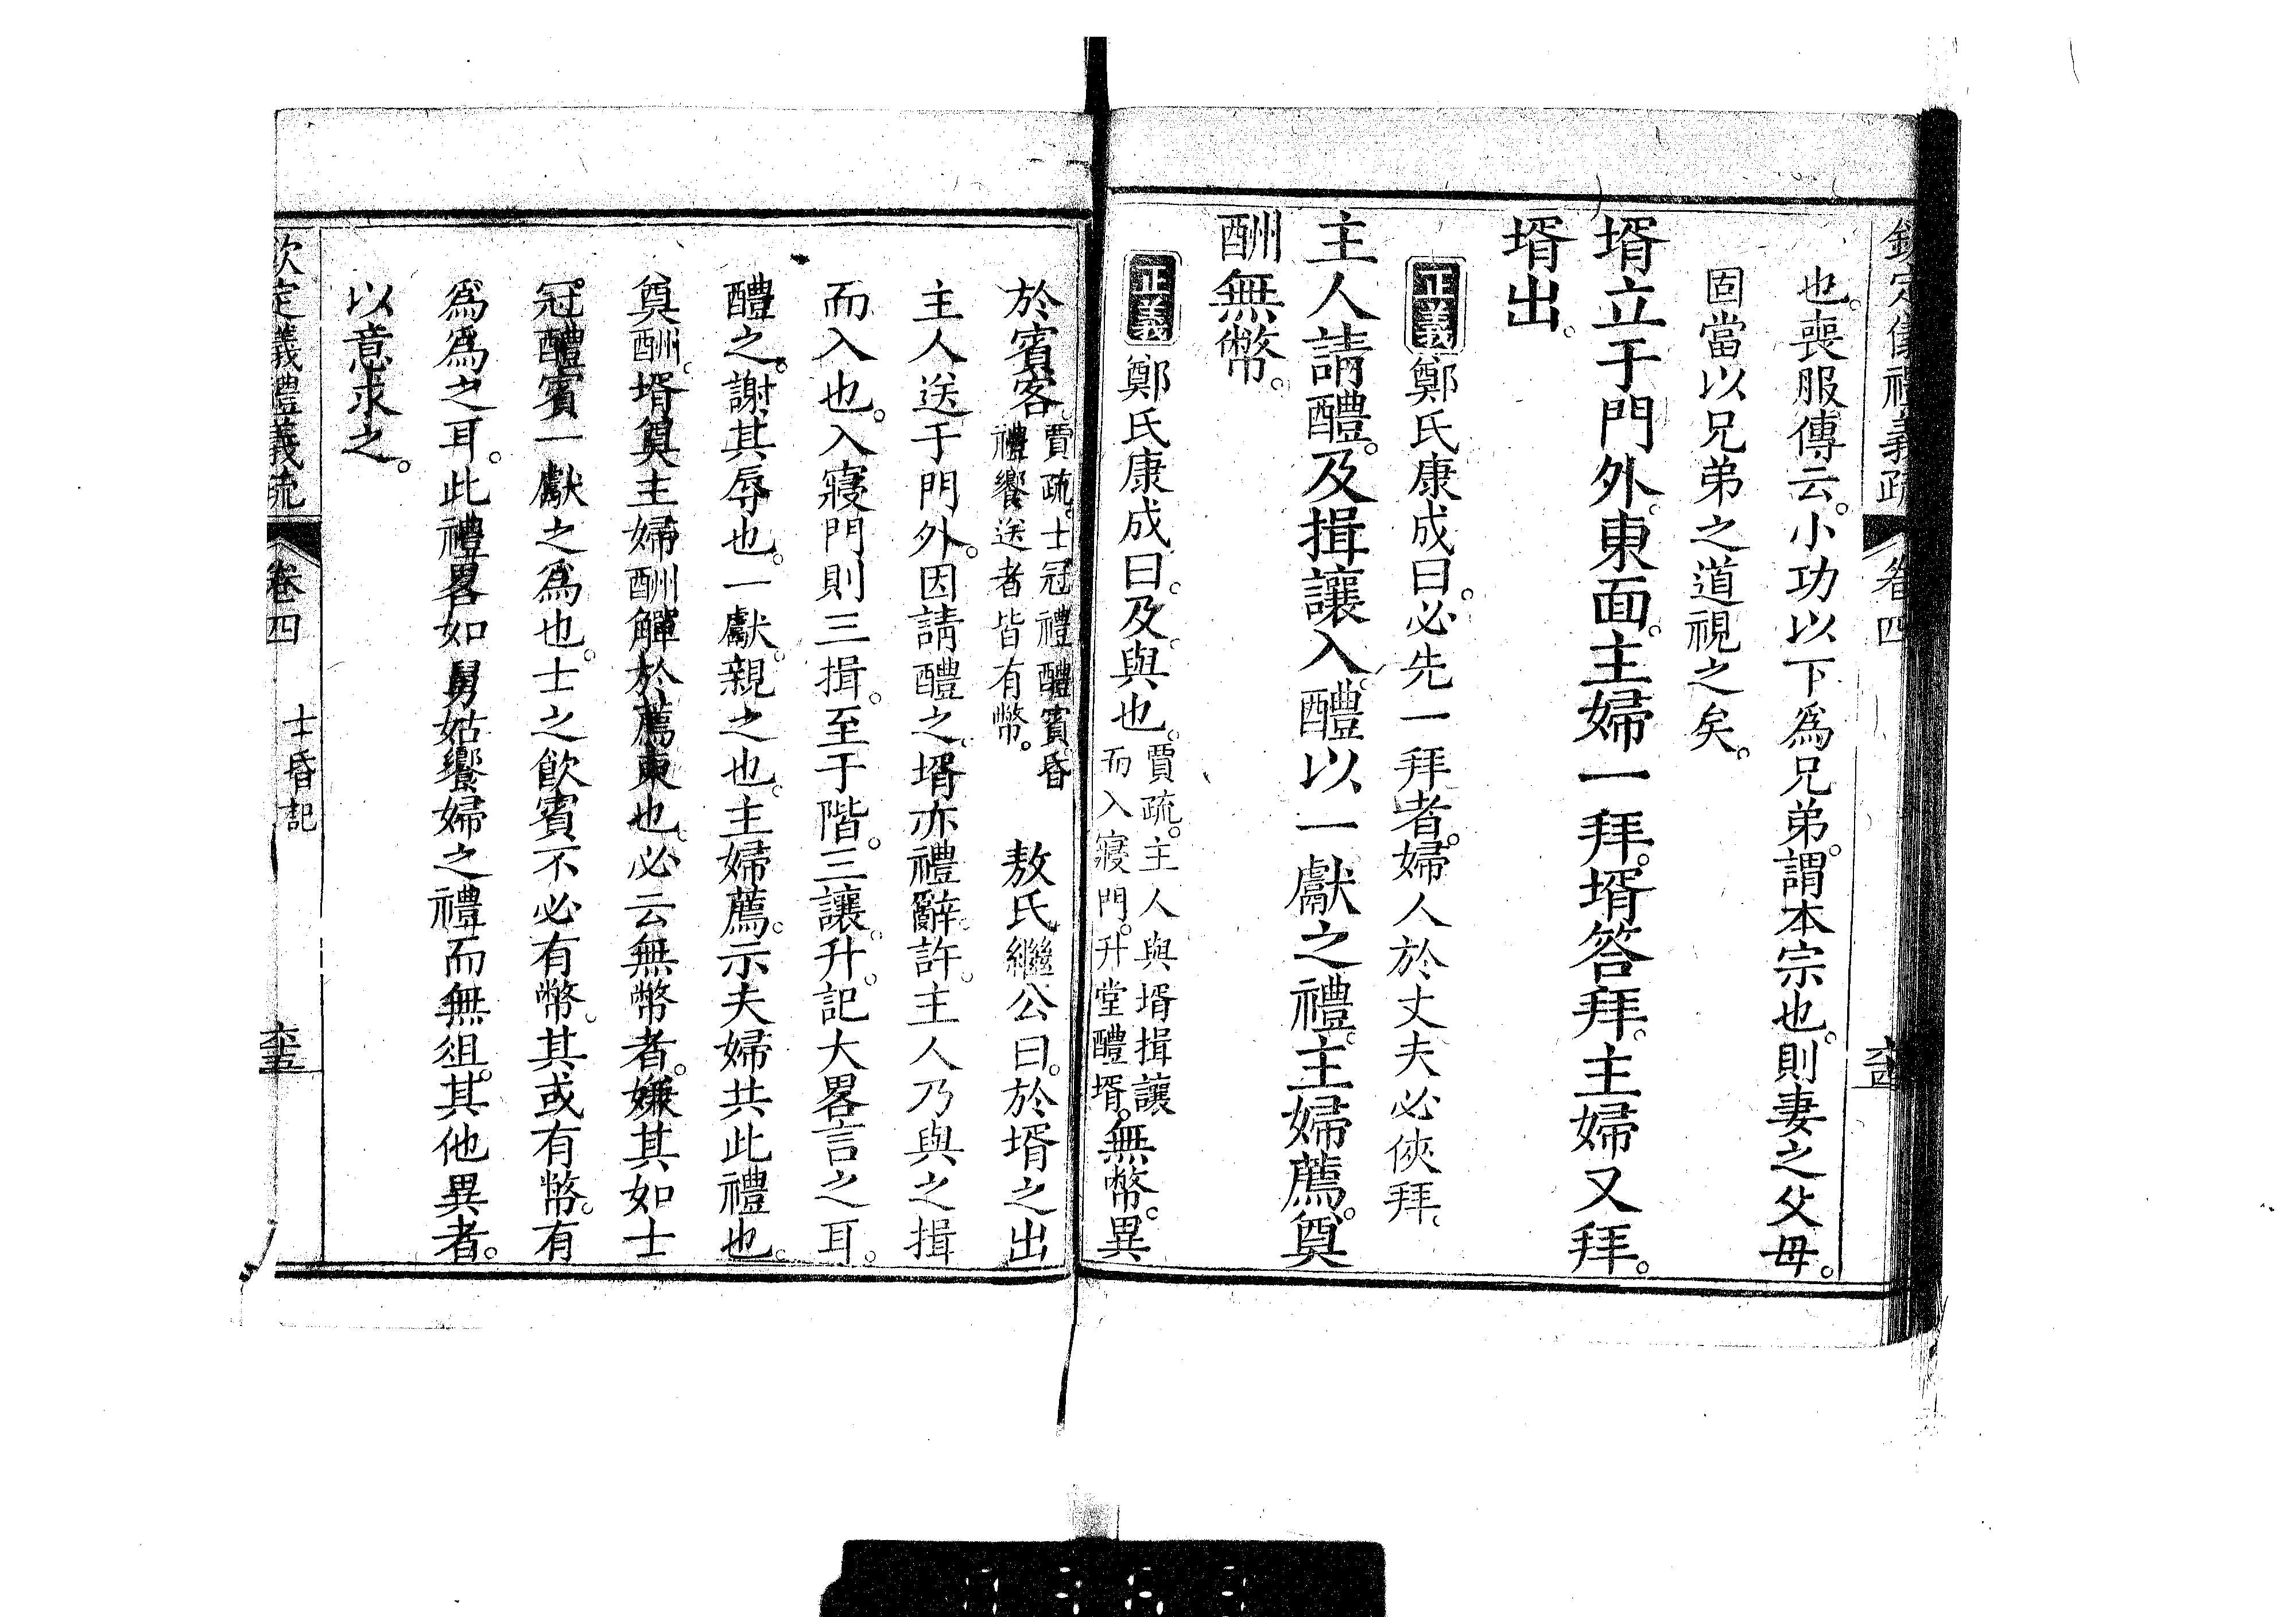 欽定儀禮義疏 卷四
也。喪服傳云。小功以下爲兄弟。謂本宗也。則妻之父母。
固當以兄弟之道視之矣。
壻立于門外。東面。主婦一拜。壻答拜。主婦又拜。
壻出。
正義鄭氏康成曰。必先一拜者。婦人於丈夫必俠拜。
主人請醴。及揖讓入。醴以一獻之禮。主婦薦。奠
酬無幣。
正義鄭氏康成曰。及。與也。賈疏。主人與壻揖讓而入寢門。升堂醴壻。無幣。異
於賓客。賈疏。士冠禮醴賓。昏禮饗送者皆有幣。 敖氏繼公曰。於壻之出
主人送于門外。因請醴之。壻亦禮辭。許。主人乃與之揖
而入也。入寢門則三揖。至于階。三讓。升。記大畧言之耳。
醴之。謝其辱也。一獻。親之也。主婦薦。示夫婦共此禮也。
奠酬。壻奠主婦酬觶於薦東也。必云無幣者。嫌其如士
冠。醴賓一獻之爲也。士之飮賓不必有幣。其或有幣。有
爲爲之耳。此禮畧如舅姑饗婦之禮而無俎。其他異者。
以意求之。
欽定義禮義疏 卷四 士昏記